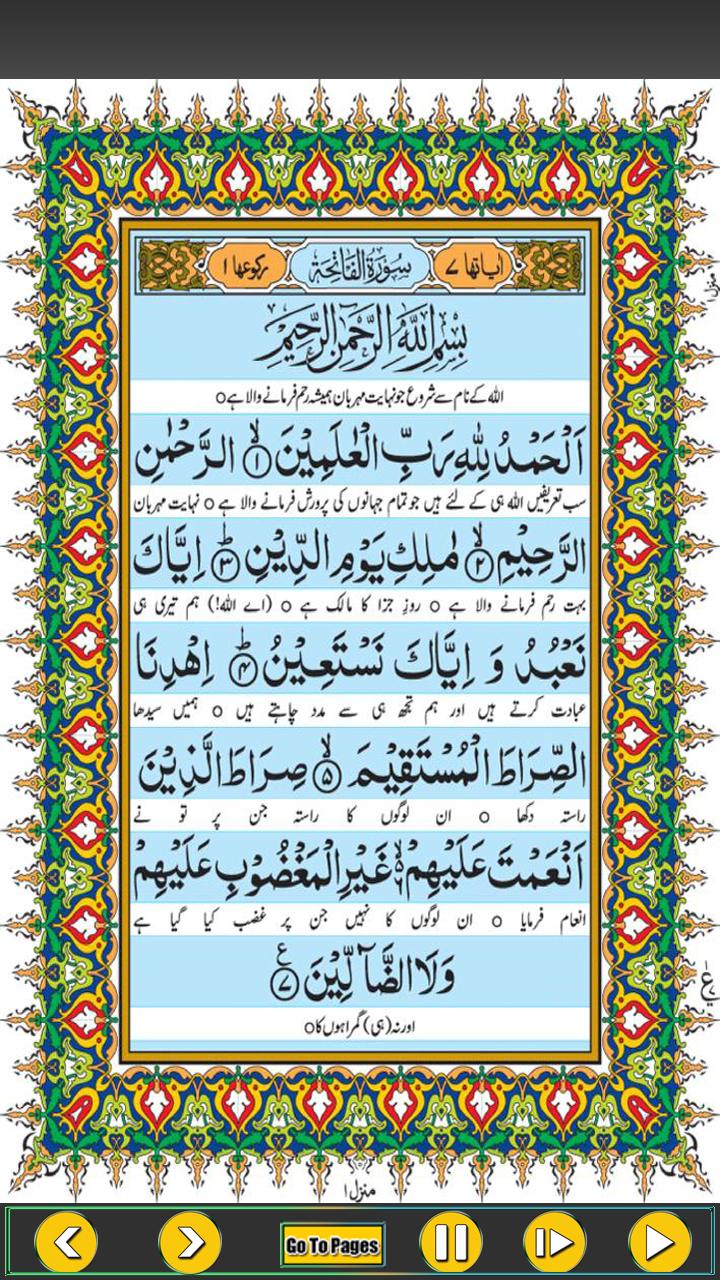 اٰیاتها ٧ سُوْرَةُ الْفَاتِحَةِ رکوعها ١
بِسْمِ اللّٰهِ الرَّحْمٰنِ الرَّحِیْمِ
اللہ کے نام سے شروع جو نہایت مہربان ہمیشہ رحم فرمانے والا ہے ○
اَلْحَمْدُ لِلّٰهِ رَبِّ الْعٰلَمِیْنَ ۙ﴿۱﴾ الرَّحْمٰنِ
سب تعریفیں اللہ ہی کے لئے ہیں جو تمام جہانوں کی پرورش فرمانے والا ہے ○ نہایت مہربان
الرَّحِیْمِ ۙ﴿۲﴾ مٰلِكِ یَوْمِ الدِّیْنِ ؕ﴿۳﴾ اِیَّاكَ
بہت رحم فرمانے والا ہے ○ روزِ جزا کا مالک ہے ○ (اے اللہ!) ہم تیری ہی
نَعْبُدُ وَ اِیَّاكَ نَسْتَعِیْنُ ؕ﴿۴﴾ اِهْدِنَا
عبادت کرتے ہیں اور ہم تجھ ہی سے مدد چاہتے ہیں ○ ہمیں سیدھا
الصِّرَاطَ الْمُسْتَقِیْمَ ۙ﴿۵﴾ صِرَاطَ الَّذِیْنَ
راستہ دکھا ○ ان لوگوں کا راستہ جن پر تو نے
اَنْعَمْتَ عَلَیْهِمْ ۙ۬﴿۶﴾ غَیْرِ الْمَغْضُوْبِ عَلَیْهِمْ
انعام فرمایا ○ ان لوگوں کا نہیں جن پر غضب کیا گیا ہے
وَلَا الضَّآلِّیْنَ ﴿۷﴾ ع
اور نہ (ہی) گمراہوں کا ○
منزل ١
ع
منزل ١
Go To Pages